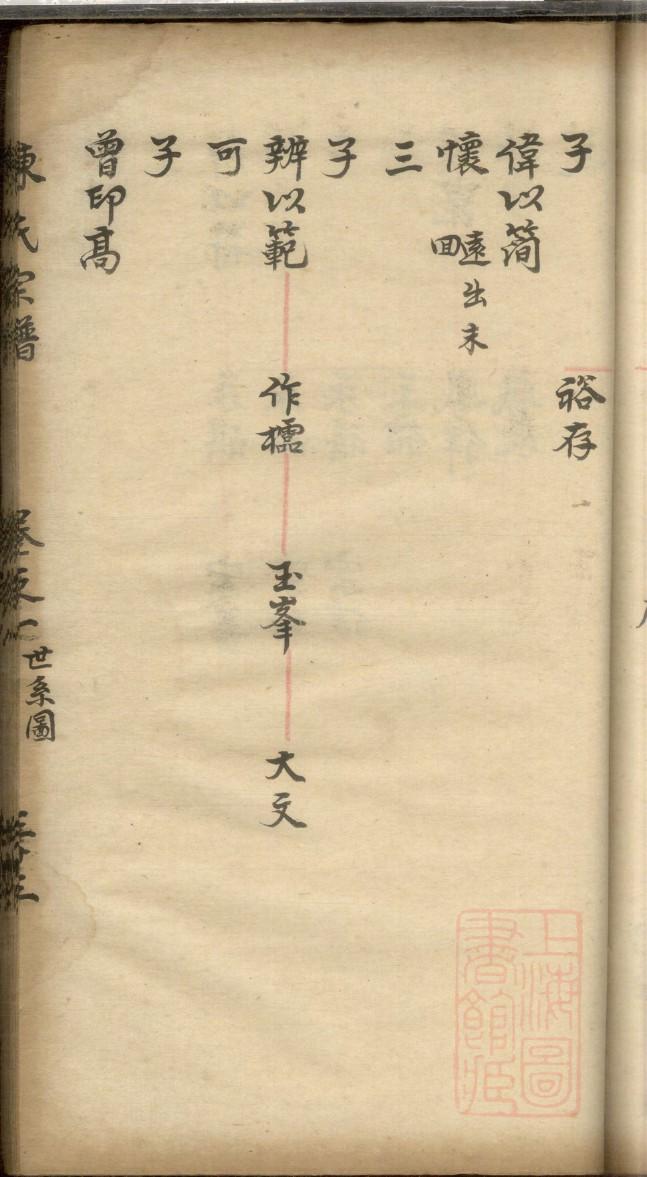 子
裕存
偉以簡
懷遠出未
回
三
子
辨以範 作檽 玉峯 大文
可
子
曾印高
陳氏宗譜
世系圖
上海圖
書館藏